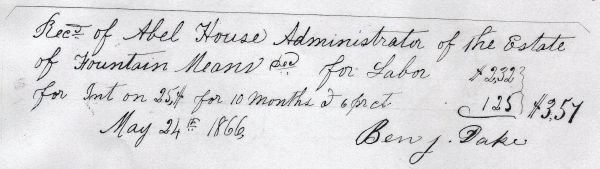 Recd of Abel House Administrator of the Estate
of Fountain Means Decd for Labor $2,32
for Int on 25,$ for 10 months @ 6 prct 1 25 $3,57
May 24th 1866,
Benj. Dake